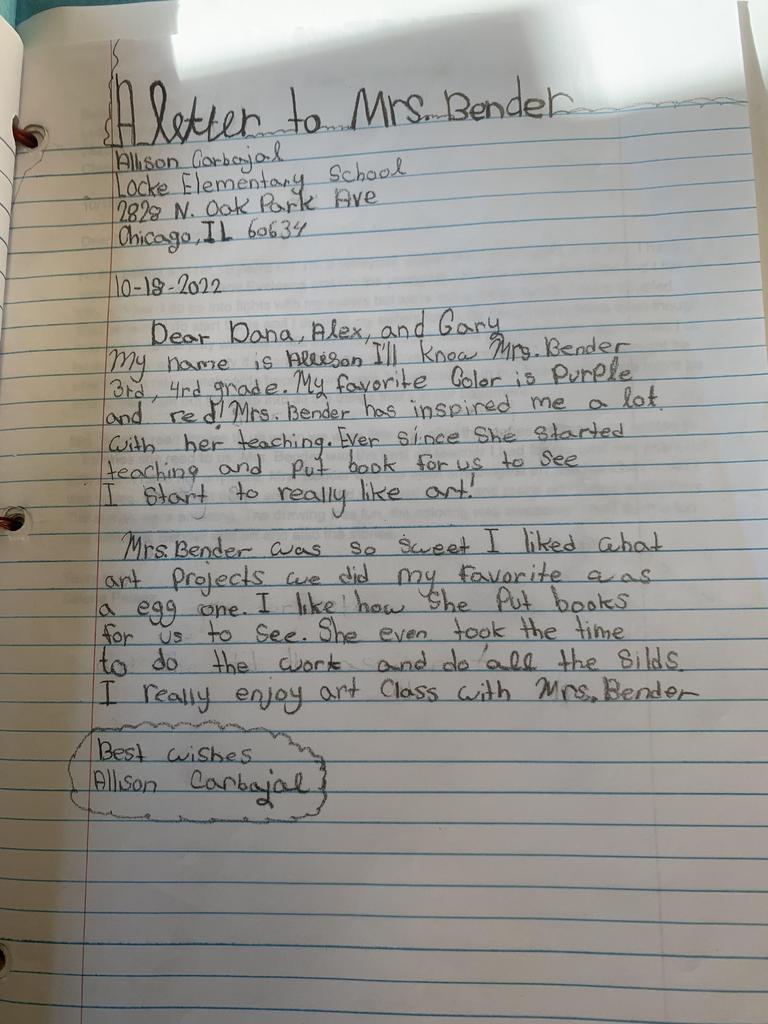 A letter to Mrs. Bender
Allison Carbajal
Locke Elementary School
2828 N. Oak Park Ave
Chicago, IL 60634
10-18-2022
Dear Dana, Alex, and Gary
My name is Allison I'll know Mrs. Bender
3rd, 4rd grade. My favorite Color is Purple
and red! Mrs. Bender has inspired me a lot
with her teaching. Ever since She Started
teaching and Put book for us to See
I Start to really like art!
Mrs. Bender was so sweet I liked what
art Projects we did my favorite was
a egg one. I like how She Put books
for us to See. She even took the time
to do the work and do all the Silds.
I really enjoy art Class with Mrs. Bender
Best wishes
Allison Carbajal